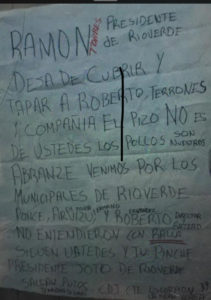 RAMON TORRES PRESIDENTE
DE RIOVERDE
DESA DE CUBRIR Y
TAPAR A ROBERTO, TERRONES
Y COMPAÑIA EL PIZO NO ES
DE USTEDES LOS POLLOS SON NUESTROS
ABRANZE VENIMOS POR LOS
MUNICIPALES DE RIOVERDE
PONCE, ARVIZU Y ROBERTO DIRECTOR
NO ENTENDIERON CON
SIGUEN USTEDES Y TU PINCHE
PRESIDENTE JOTO DE RIOVERDE
SALGAN PUTOS